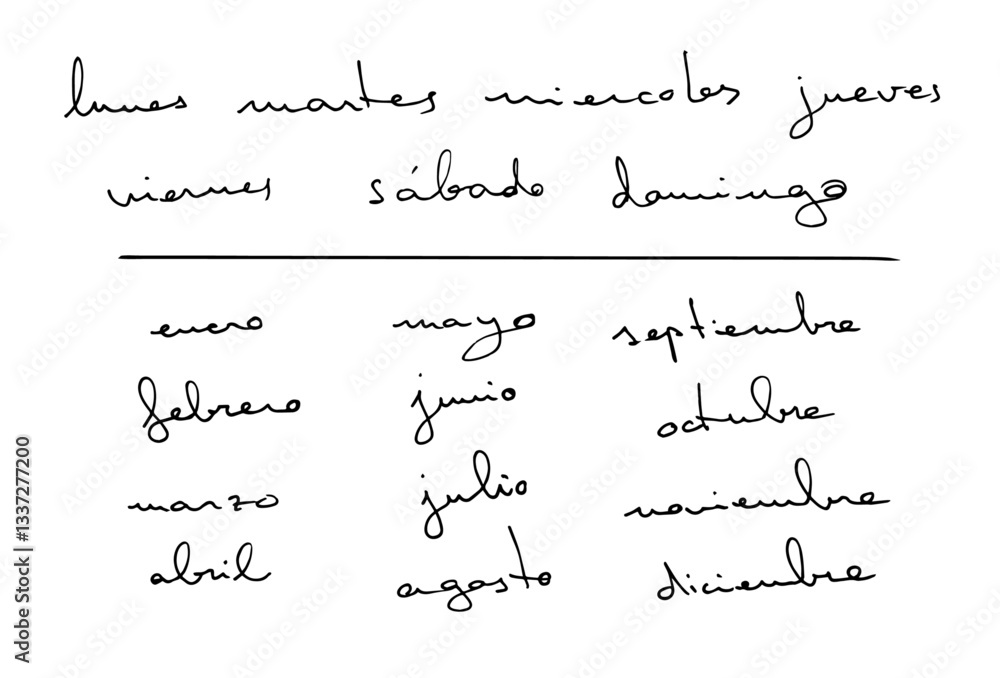 lunes martes miercoles jueves
viernes sábado domingo
enero mayo septiembre
febrero junio octubre
marzo julio noviembre
abril agosto diciembre
Adobe Stock | #1337277200